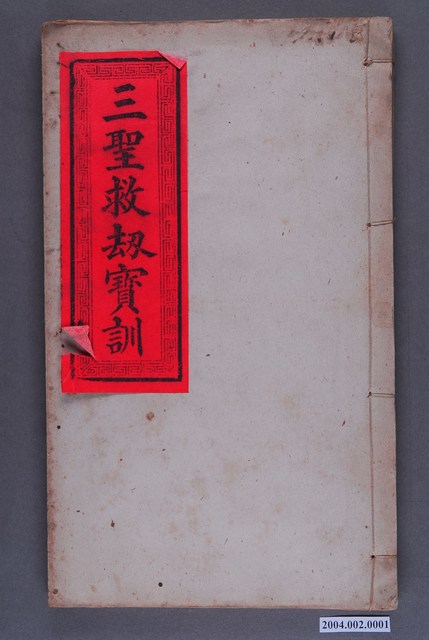 三聖救刼寶訓
2004.002.0001